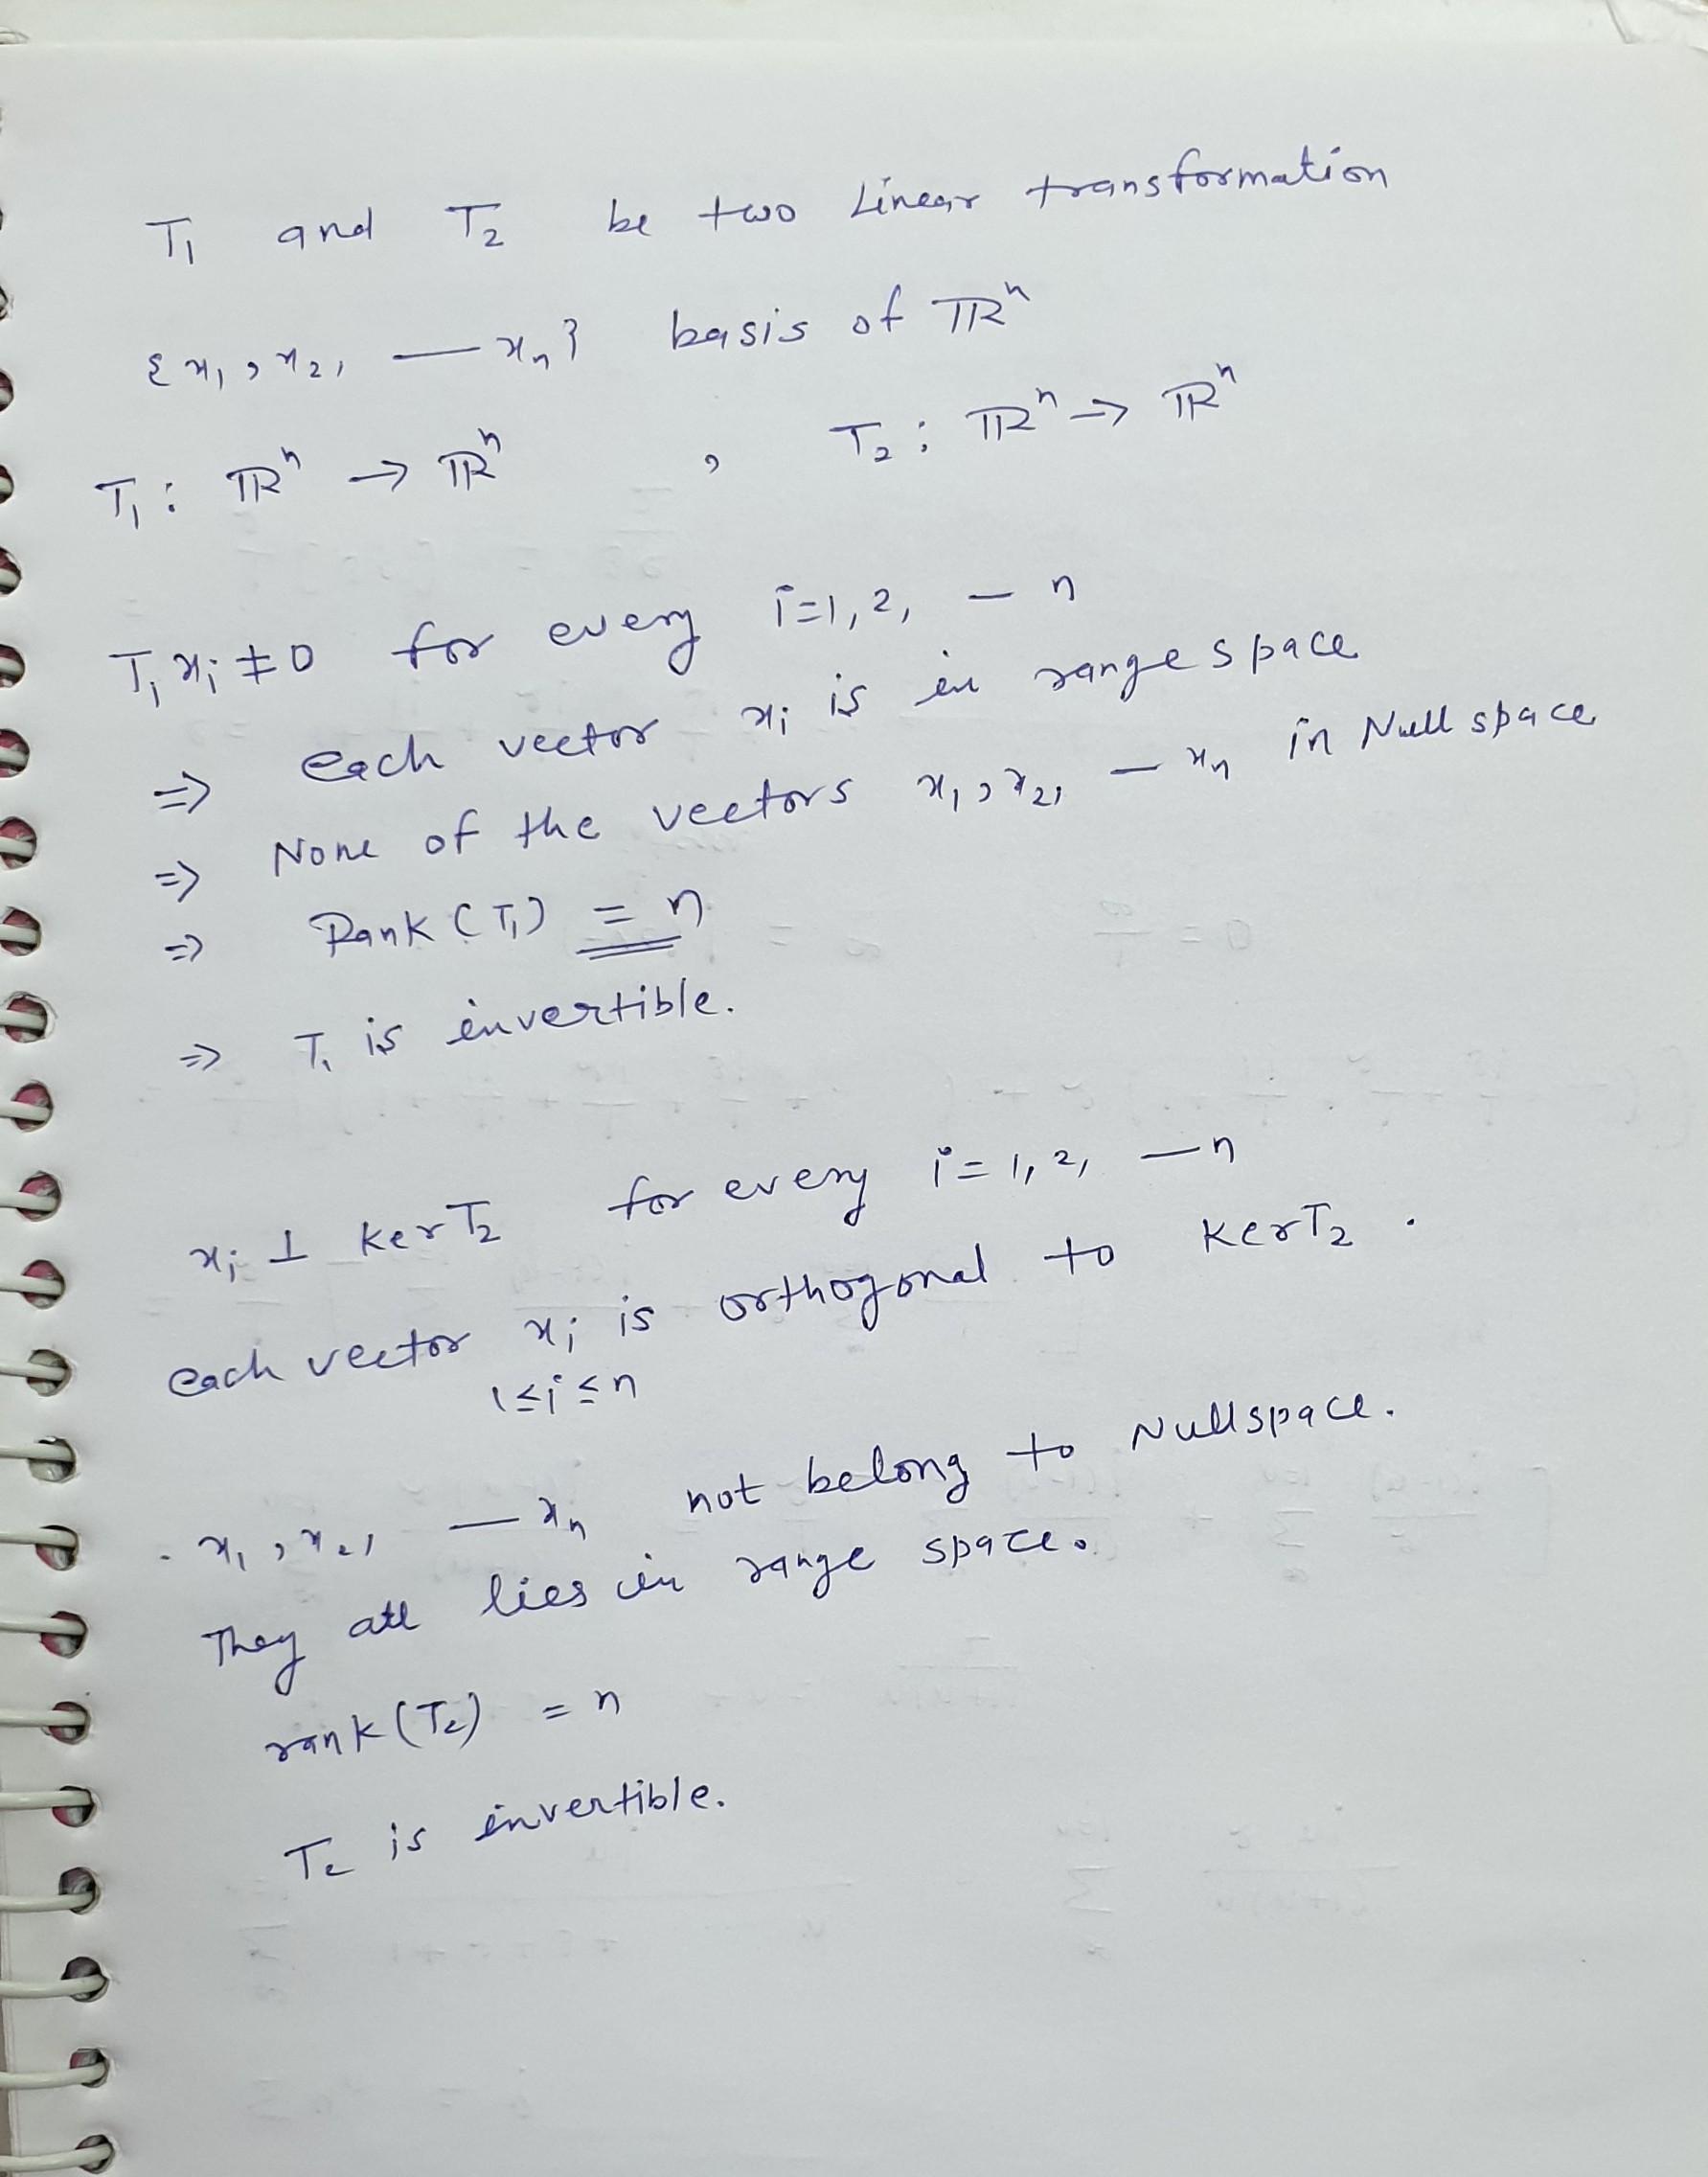 T₁ and T₂ be two Linear transformation
{x₁, x₂, — xₙ} basis of ℝⁿ
T₁: ℝⁿ → ℝⁿ , T₂: ℝⁿ → ℝⁿ
T₁xᵢ ≠ 0 for every i=1,2, — n
⇒ each vector xᵢ is in range space
⇒ None of the vectors x₁, x₂, — xₙ in Null space
⇒ Rank (T₁) = n
⇒ T₁ is invertible.
xᵢ ⊥ ker T₂ for every i = 1, 2, — n
each vector xᵢ is orthogonal to Ker T₂ .
1≤i≤n
. x₁, x₂, — xₙ not belong to Nullspace.
They all lies in range space.
rank (T₂) = n
T₂ is invertible.